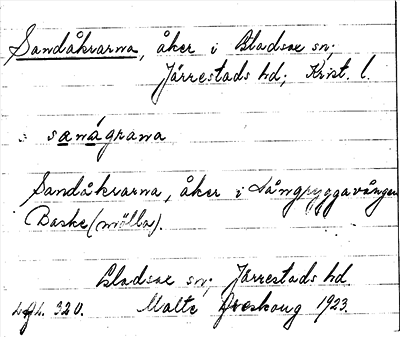 Sandåkrarna, åker i Bladsax sn;
Järrestads hd; Krist. l.
sanágrana
Sandåkrarna, åker i Långryggavången
Baske (mölla).
Bladsax sn; Järrestads hd
320. Malte 1923.